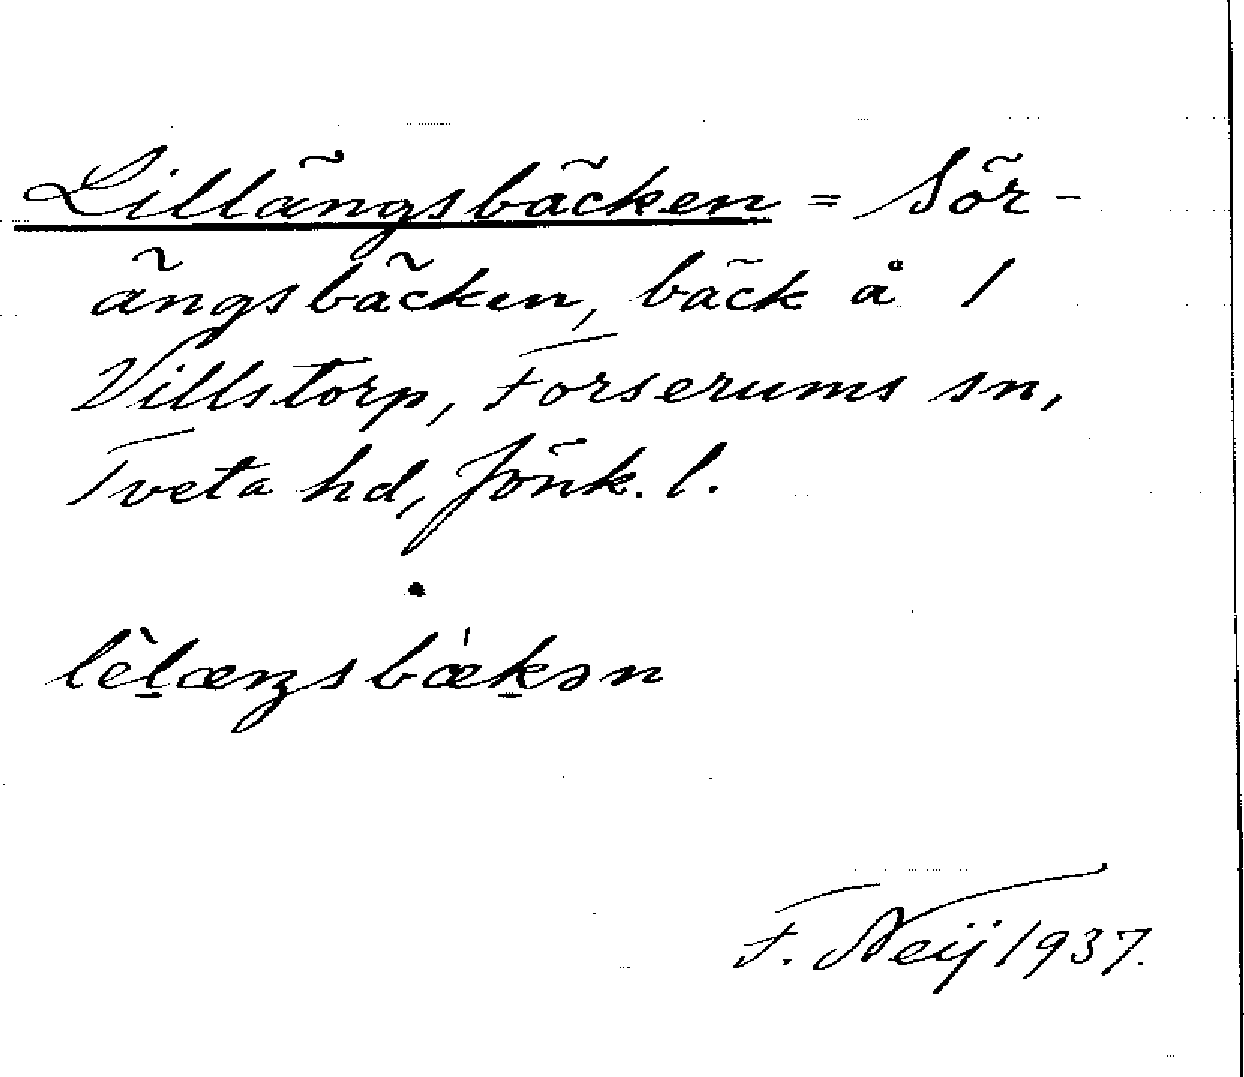 Lillängsbäcken = Sör-
ängsbäcken, bäck å 1
Villstorp, Forserums sn,
Tveta hd, Jönk. l.
lèl̠æŋsbæ̍k̠ən
F. Neij 1937.